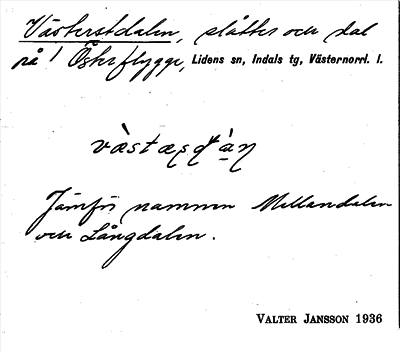 Västerstdalen, slåtter och dal
på 1 Österflygge, Lidens sn, Indals tg, Västernorrl. l.
Jämför namnen Mellandalen
och Långdalen.
VALTER JANSSON 1936